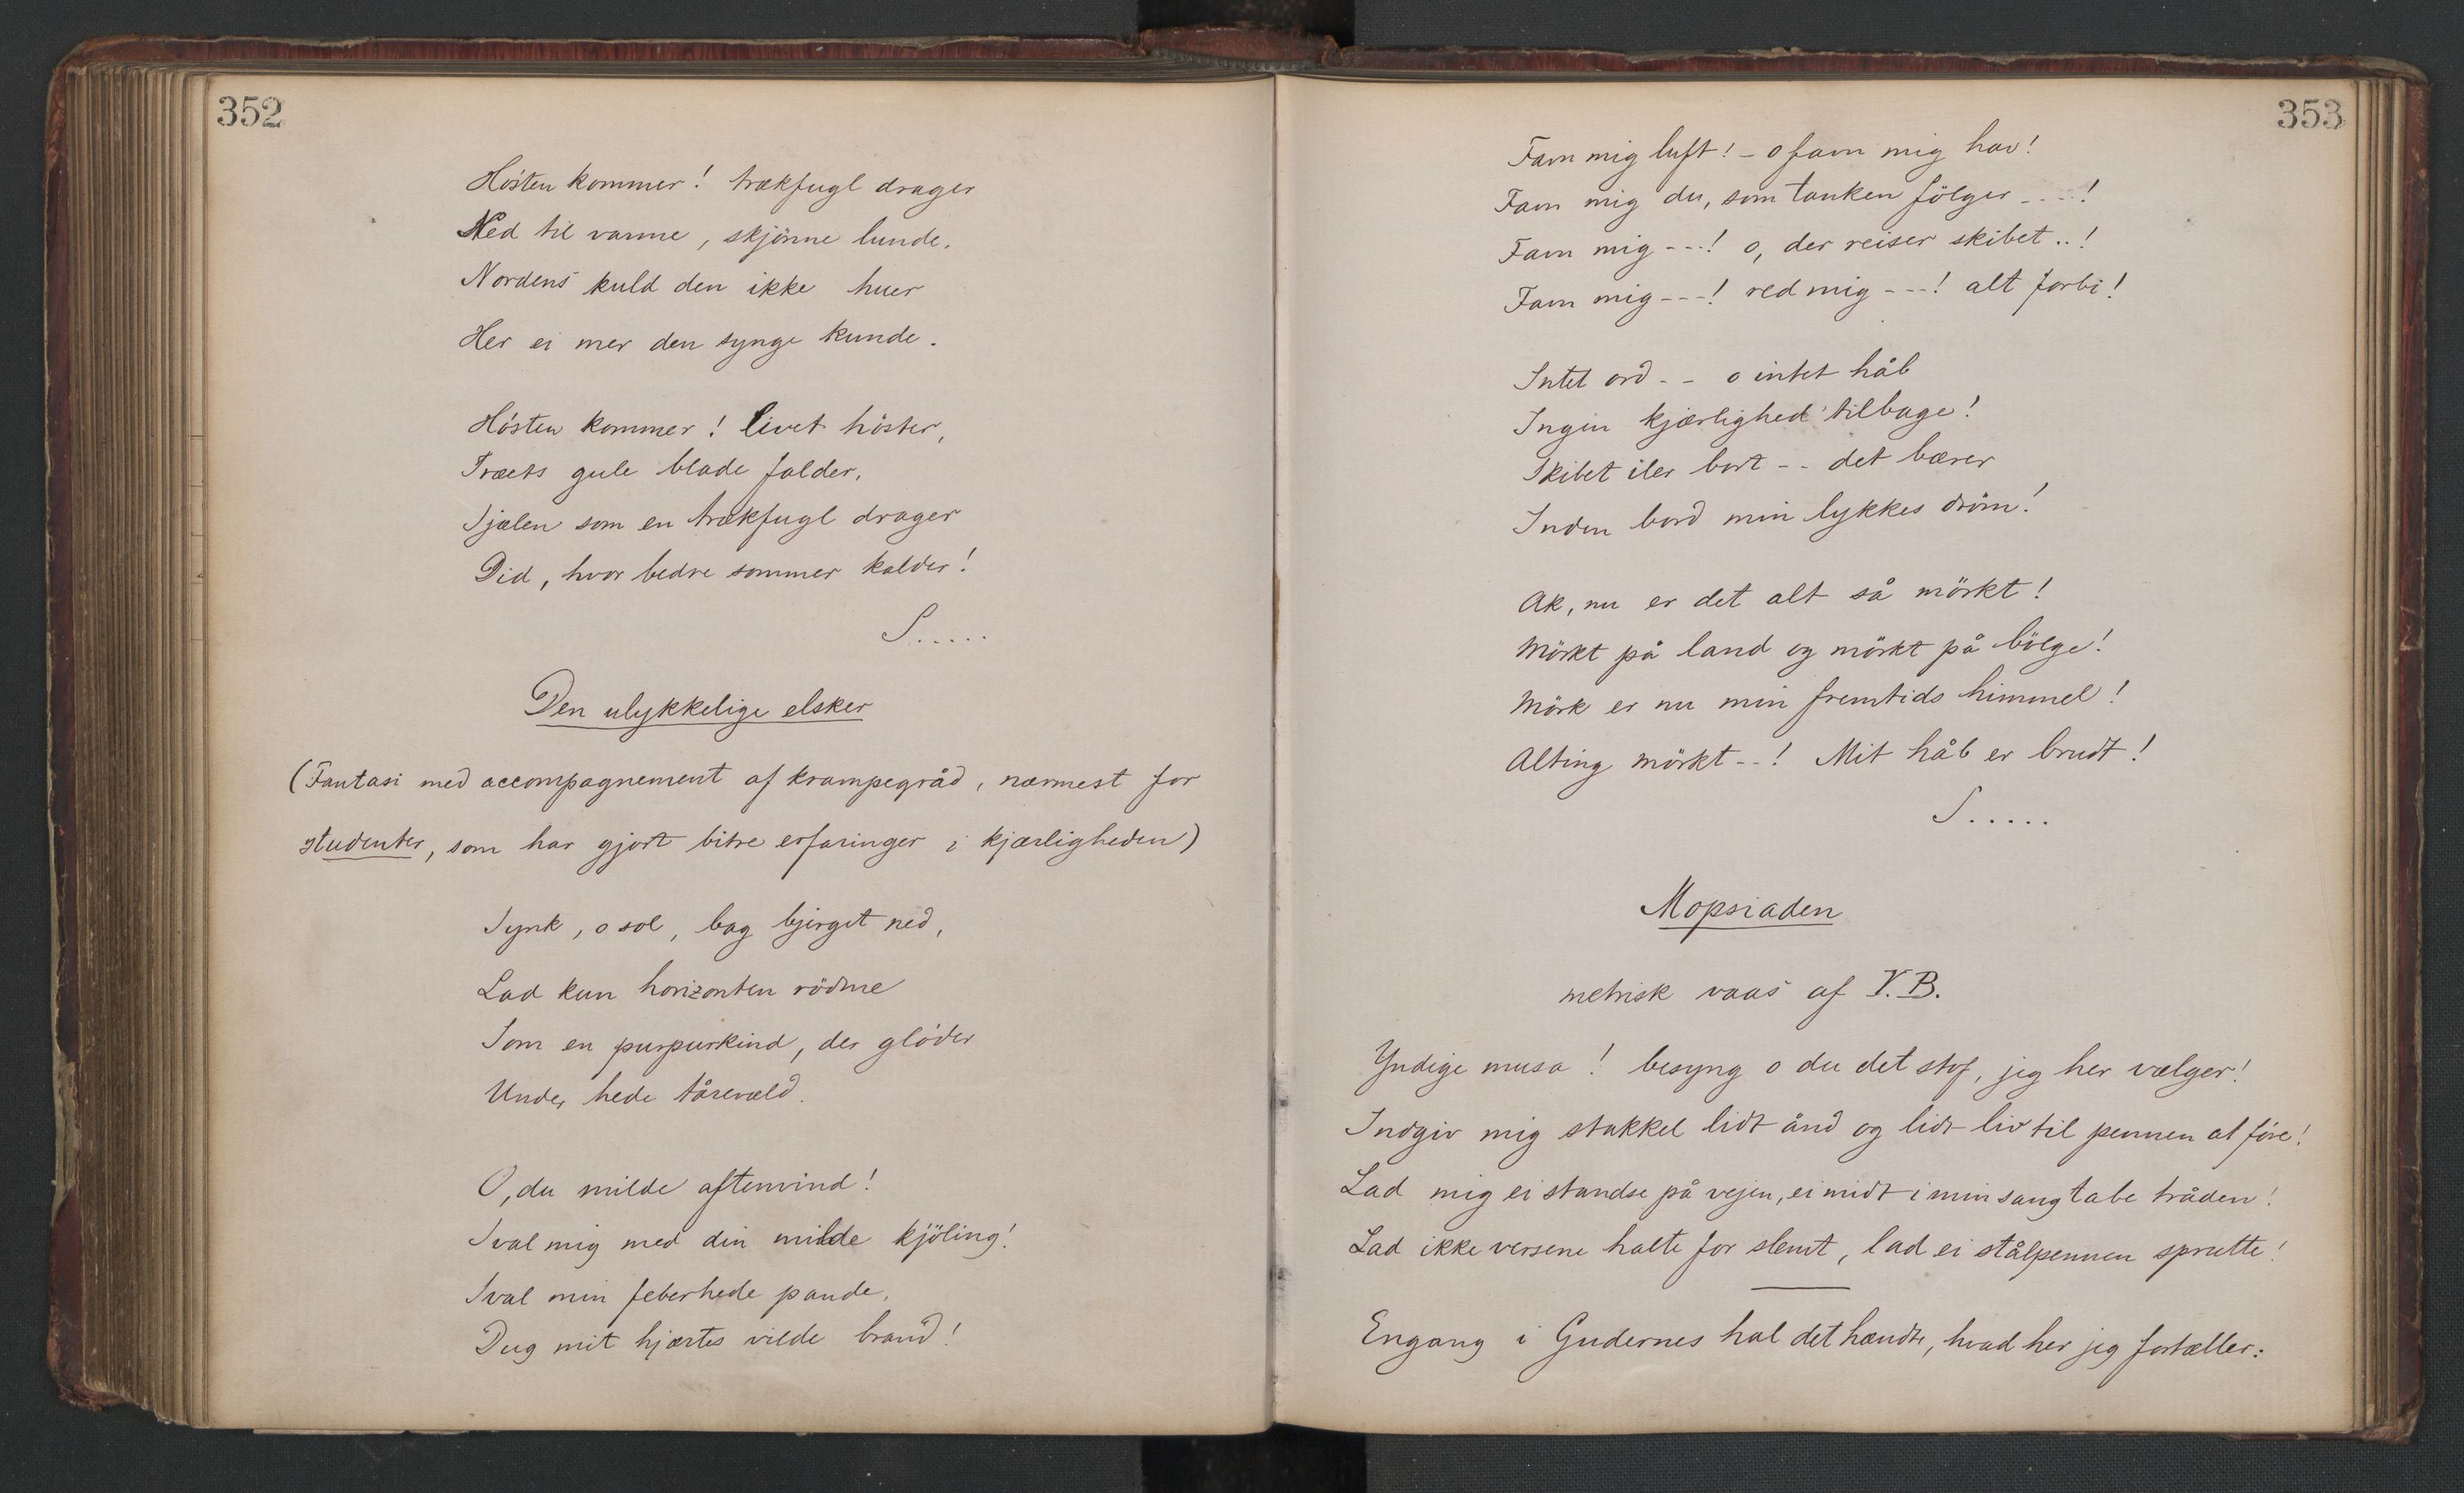 352
Hósten kommer! trækfugl drager
Ned til varme, skjönne lunde.
Nordens kuld den ikke huer
Her ei mer den synge kunde.
Hósten kommer! livet höster,
Træets gule blade falder,
Sjælen som en trækfugl drager
Did, hvor bedre sommer kalder!
S.....
Den ulykkelige elsker
(Fantasi med accompagnement af krampegråd, nærmest for
studenter, som har gjort bitre erfaringer i kjærligheden)
Synk, o sol, bag bjerget ned,
Lad kun horizonten rödme
Som en purpurkind, der glóder
Under hede tårevæld.
O, du milde aftenvind!
Sval mig med din milde kjöling!
Sval min feberhede pande,
Dug mit hjærtes vilde brand!
353
Favn mig luft! - o favn mig hav!
Favn mig du, som tanken fölger ----!
Favn mig ---! o, der reiser skibet..!
Favn mig ---! red mig ---! alt forbi!
Intet ord -- o intet håb
Ingen kjærlighed tilbage!
Skibet iler bort -- det bærer
Inden bord min lykkes dröm!
Ak, nu er det alt så mörkt!
Mörkt på land og mörkt på bölge!
Mörk er nu min fremtids himmel!
Alting mörkt --! Mit håb er brudt!
S.....
Mopsiaden
metrisk vaas af V.B.
Yndige musa! besyng o du det stof, jeg her vælger!
Indgiv mig stakkel lidt ånd og lidt liv til pennen at före!
Lad mig ei standse på vejen, ei midt i min sang tabe tråden!
Lad ikke versene halte for slemt, lad ei stålpennen sprutte!
Engang i Gudernes hal det hændte, hvad her jeg fortæller: